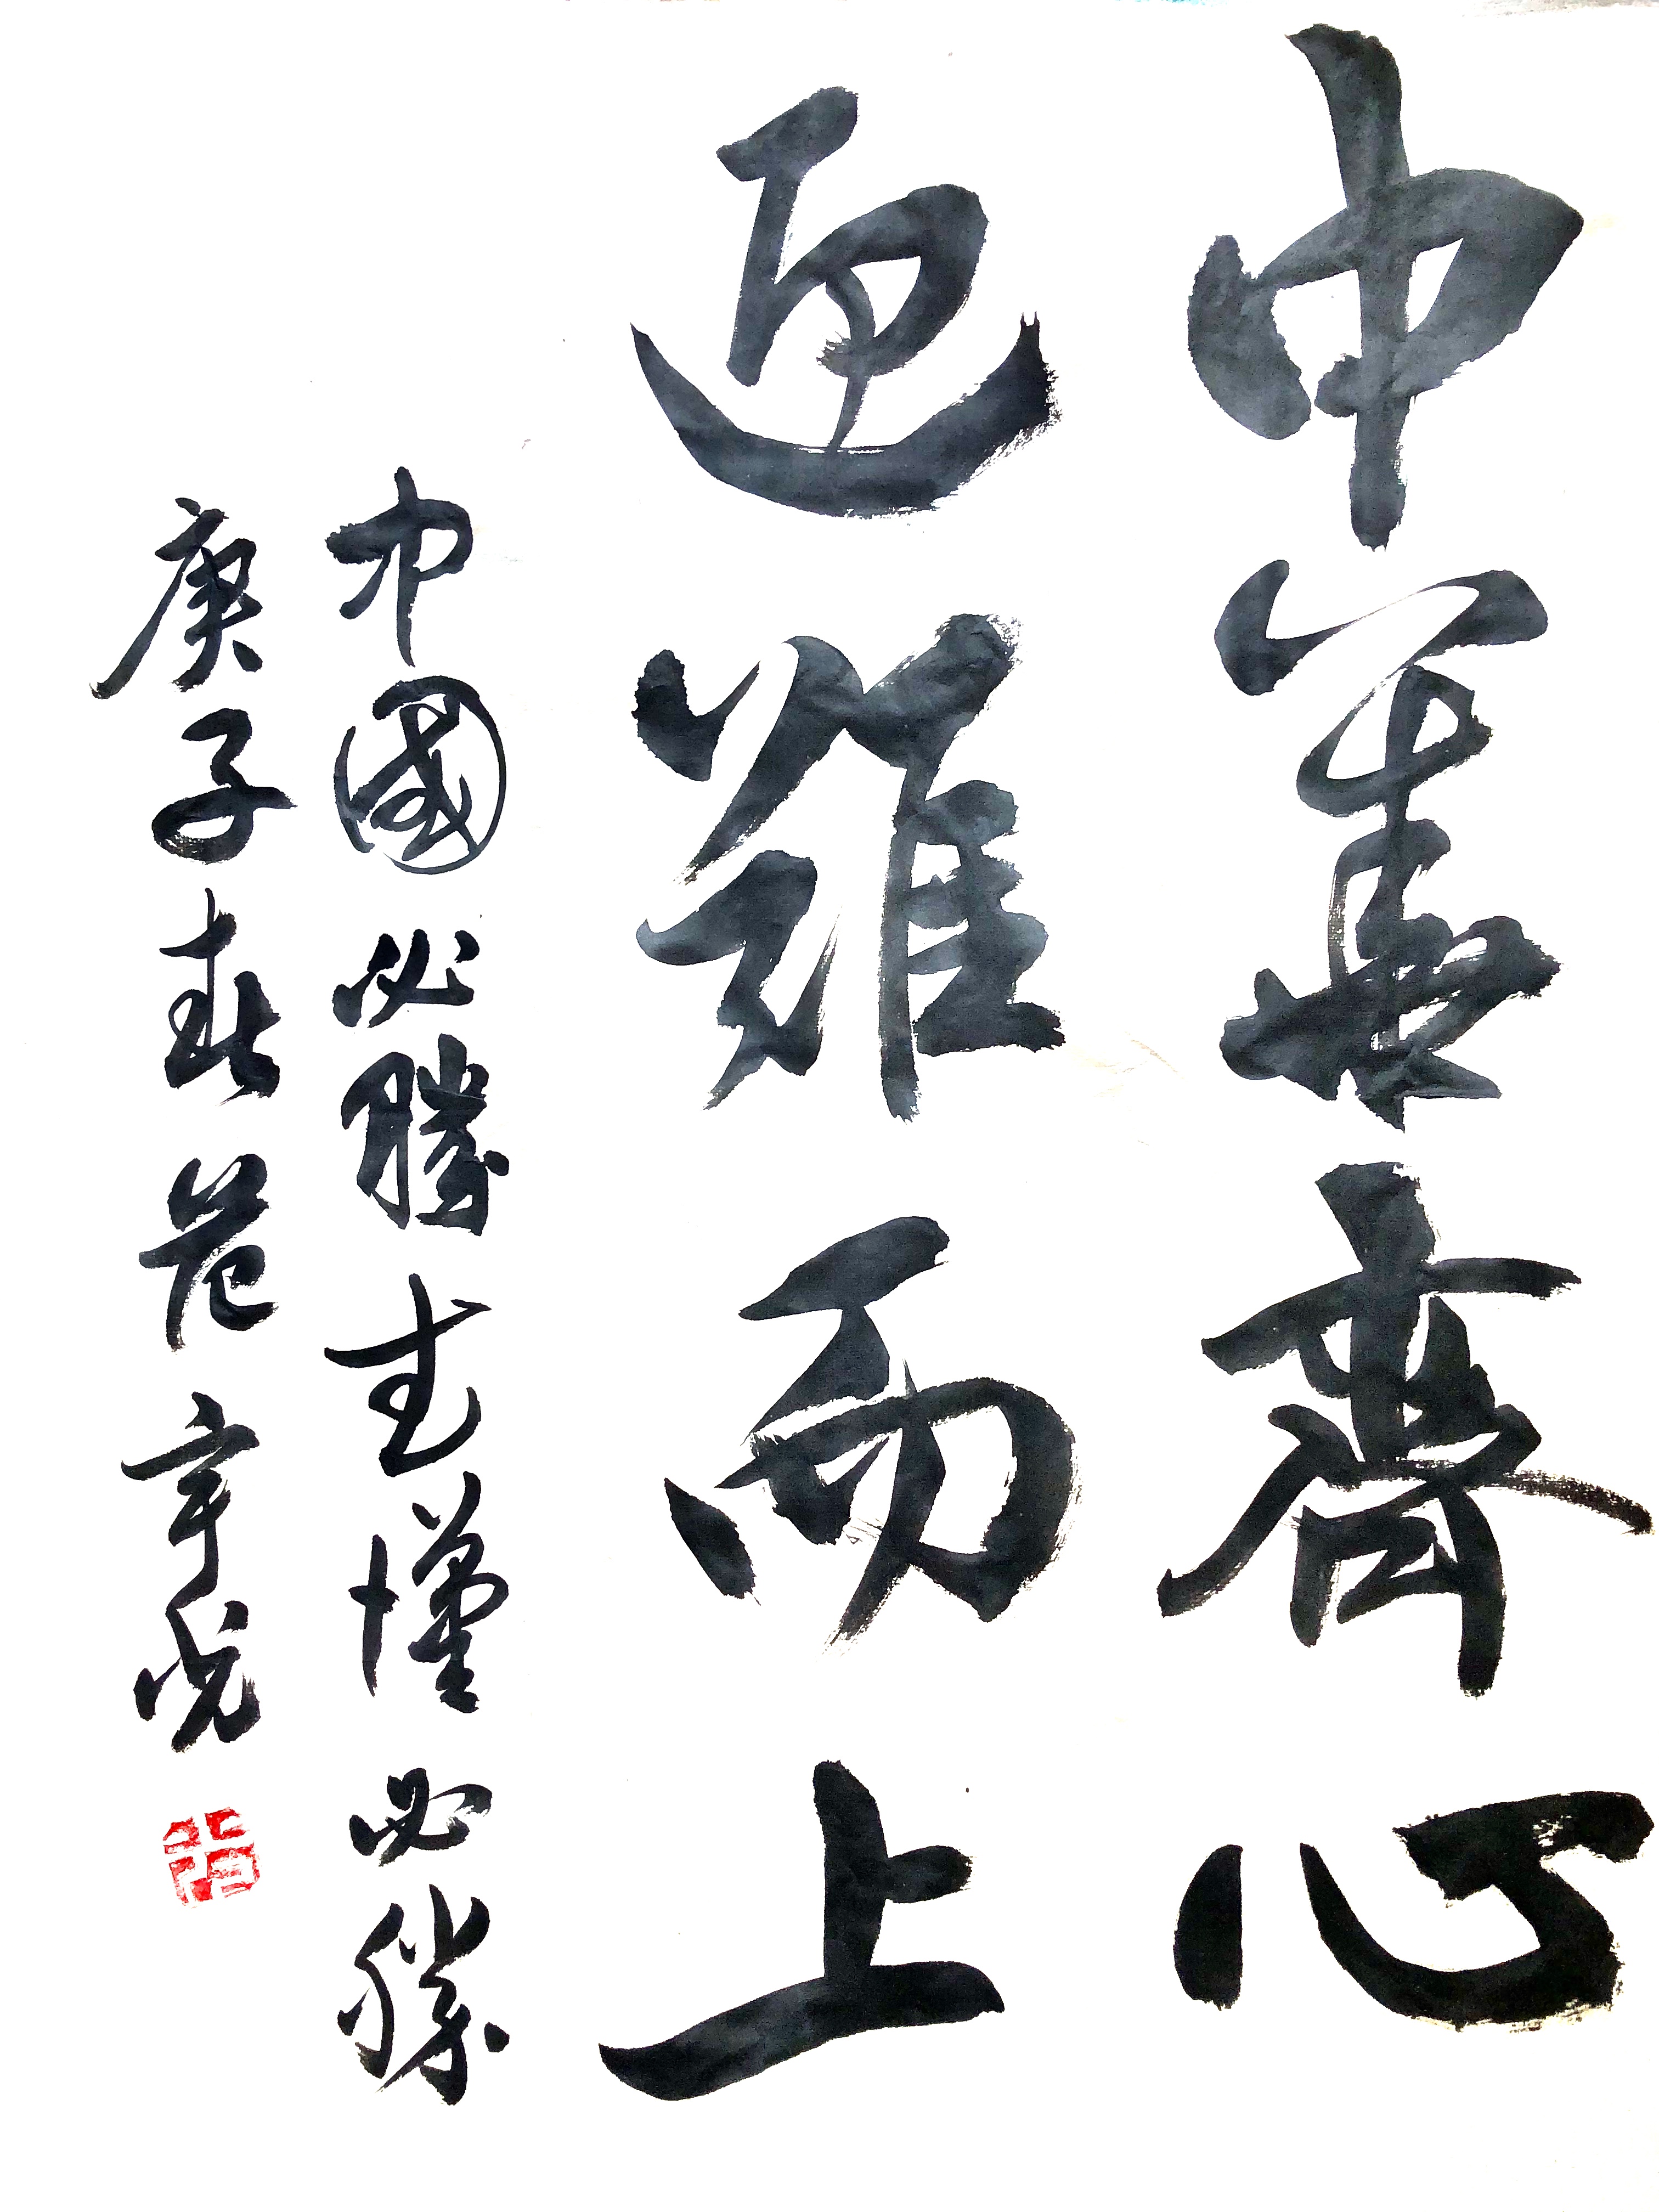 中華齊心
迎難而上
中國必勝武漢必勝
庚子春范宇光